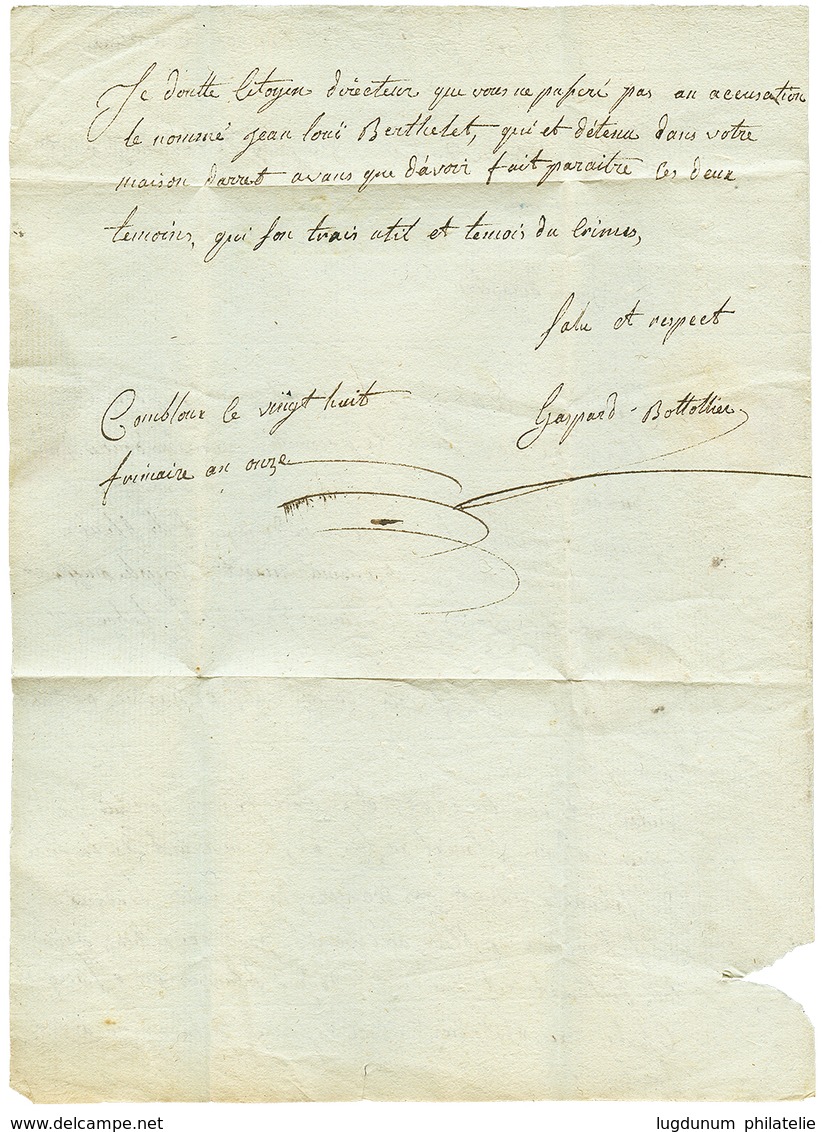 Je doutte Citoyen directeur que vous ne passeré pas an accusation
le nommé jean Louï Berthelet, qui et détenu dans votre
maison darret avans que d'avoir fait paraitre ces deux
temoins, qui son trais util et temois du Crimes,
Salu et respect
Combloux le vingt huit
Gaspard - Bottollier
frimaire an onze
www.delcampe.net
lugdunum philatelie